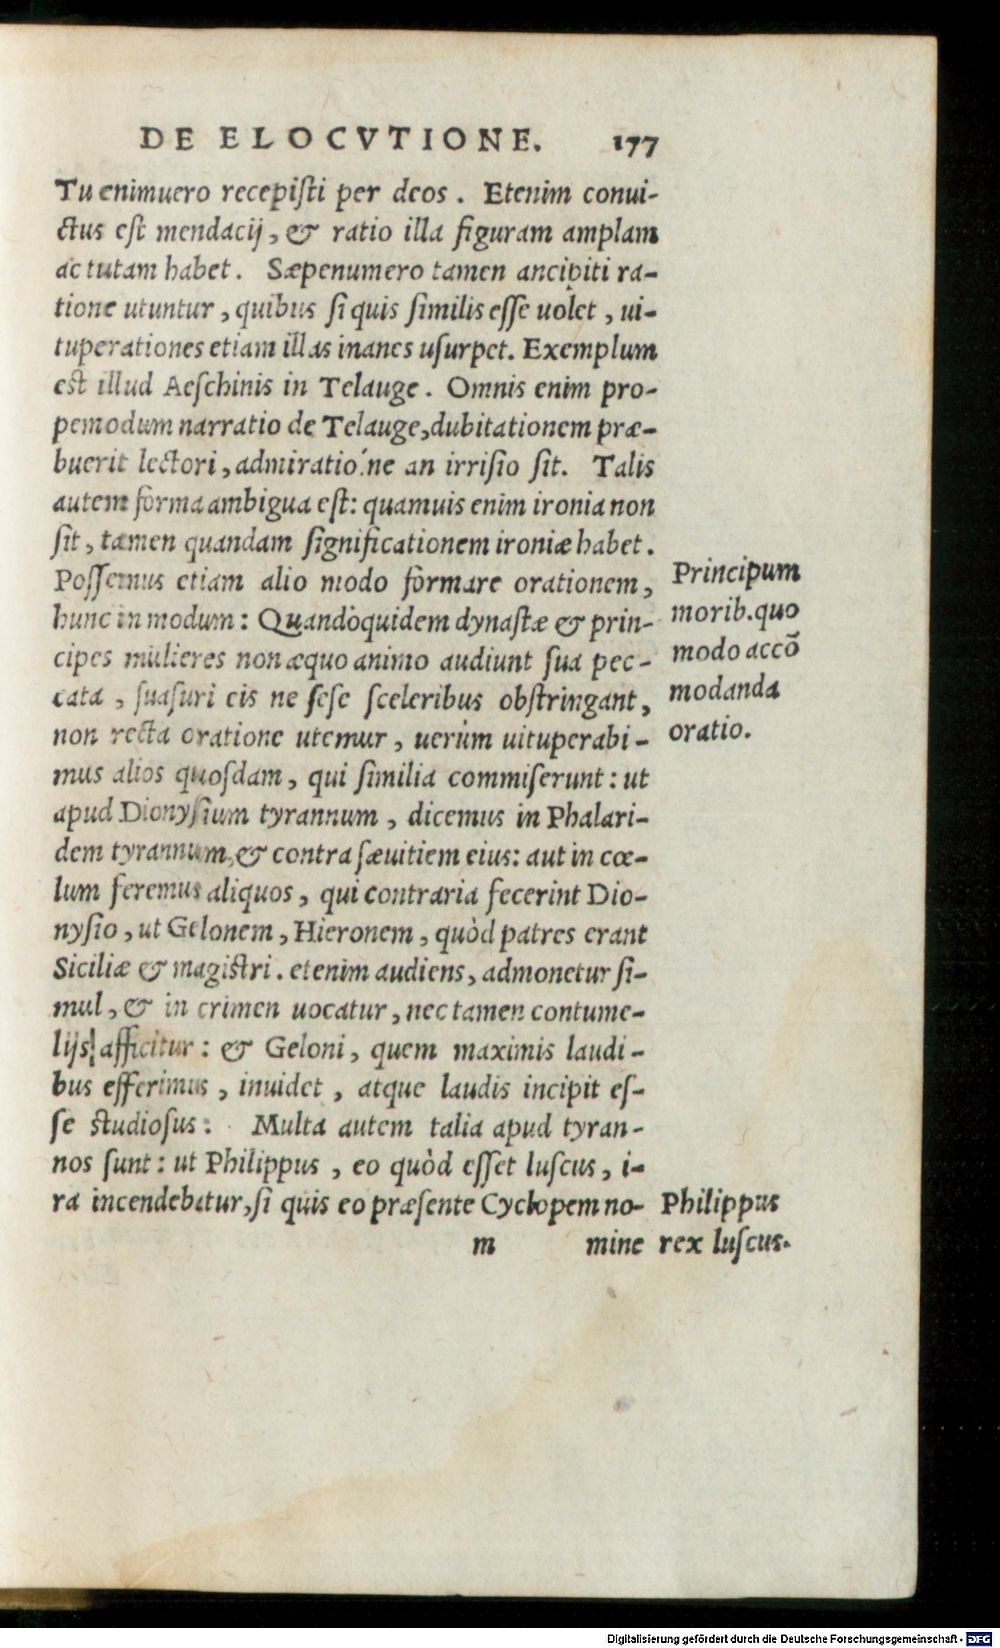 DE ELOCVTIONE. 177
Tu enimuero recepiſti per deos. Etenim conui-
ctus eſt mendacij, & ratio illa figuram amplam
ac tutam habet. Sæpenumero tamen ancipiti ra-
tione utuntur, quibus ſi quis ſimilis eſſe uolet, ui-
tuperationes etiam illas inanes uſurpet. Exemplum
eſt illud Aeſchinis in Telauge. Omnis enim pro-
pemodum narratio de Telauge, dubitationem præ-
buerit lectori, admiratio'ne an irriſio ſit. Talis
autem forma ambigua eſt: quamuis enim ironia non
ſit, tamen quandam ſignificationem ironiæ habet.
Poſſemus etiam alio modo formare orationem,
hunc in modum: Quandòquidem dynaſtæ & prin-
cipes mulieres non æquo animo audiunt ſua pec-
cata, ſuaſuri eis ne ſeſe ſceleribus obſtringant,
non recta oratione utemur, uerùm uituperabi-
mus alios quoſdam, qui ſimilia commiſerunt: ut
apud Dionyſium tyrannum, dicemus in Phalari-
dem tyrannum, & contra ſæuitiem eius: aut in cœ-
lum feremus aliquos, qui contraria fecerint Dio-
nyſio, ut Gelonem, Hieronem, quòd patres erant
Siciliæ & magiſtri. etenim audiens, admonetur ſi-
mul, & in crimen uocatur, nec tamen contume-
lijs afficitur: & Geloni, quem maximis laudi-
bus efferimus, inuidet, atque laudis incipit eſ-
ſe ſtudioſus: Multa autem talia apud tyran-
nos ſunt: ut Philippus, eo quòd eſſet luſcus, i-
ra incendebatur, ſi quis eo præſente Cyclopem no-
m mine
Principum
morib. quo
modo accõ
modanda
oratio.
Philippus
rex luſcus.
Digitalisierung gefördert durch die Deutsche Forschungsgemeinschaft - DFG